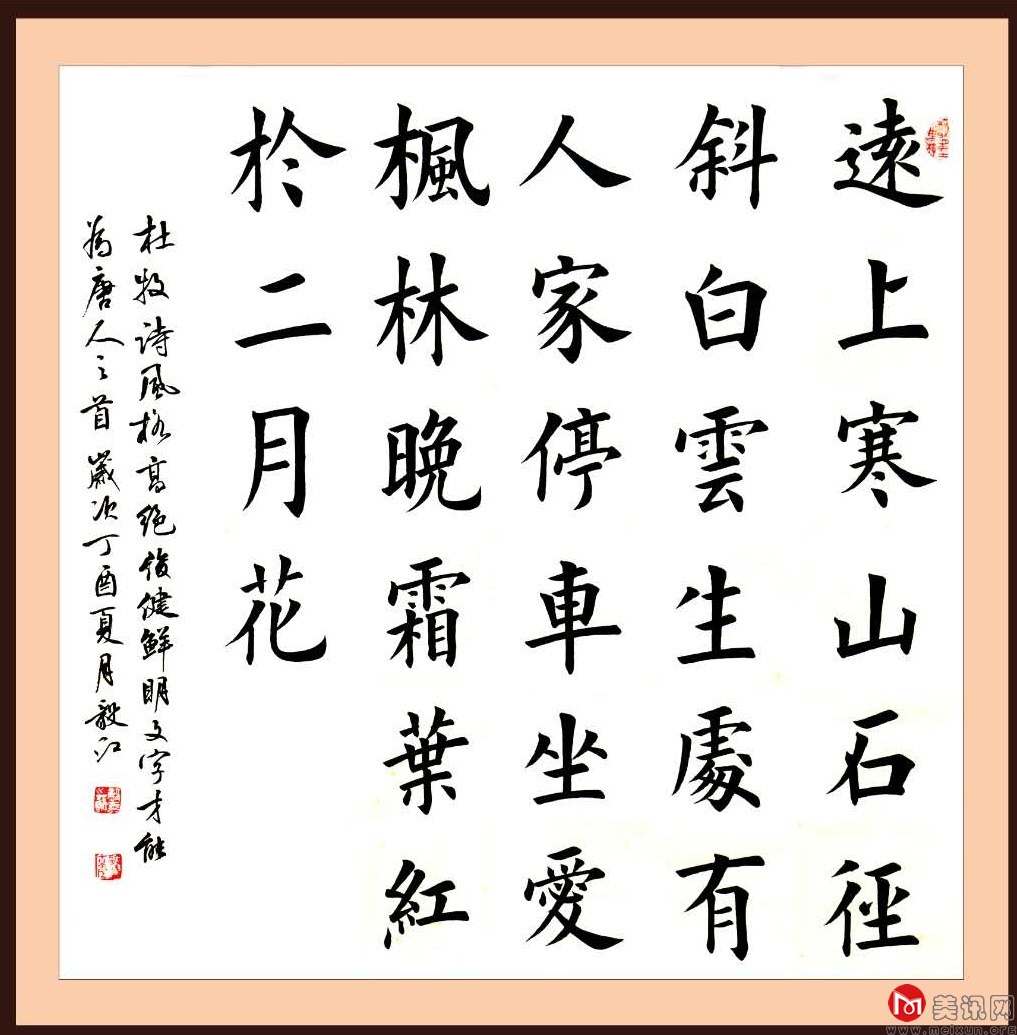 遠上寒山石徑
斜白雲生處有
人家停車坐愛
楓林晚霜葉紅
於二月花
杜牧诗風格高绝俊健鮮明文字才能
為唐人之首歲次丁酉夏月毅江
美讯网
www.meixun.org